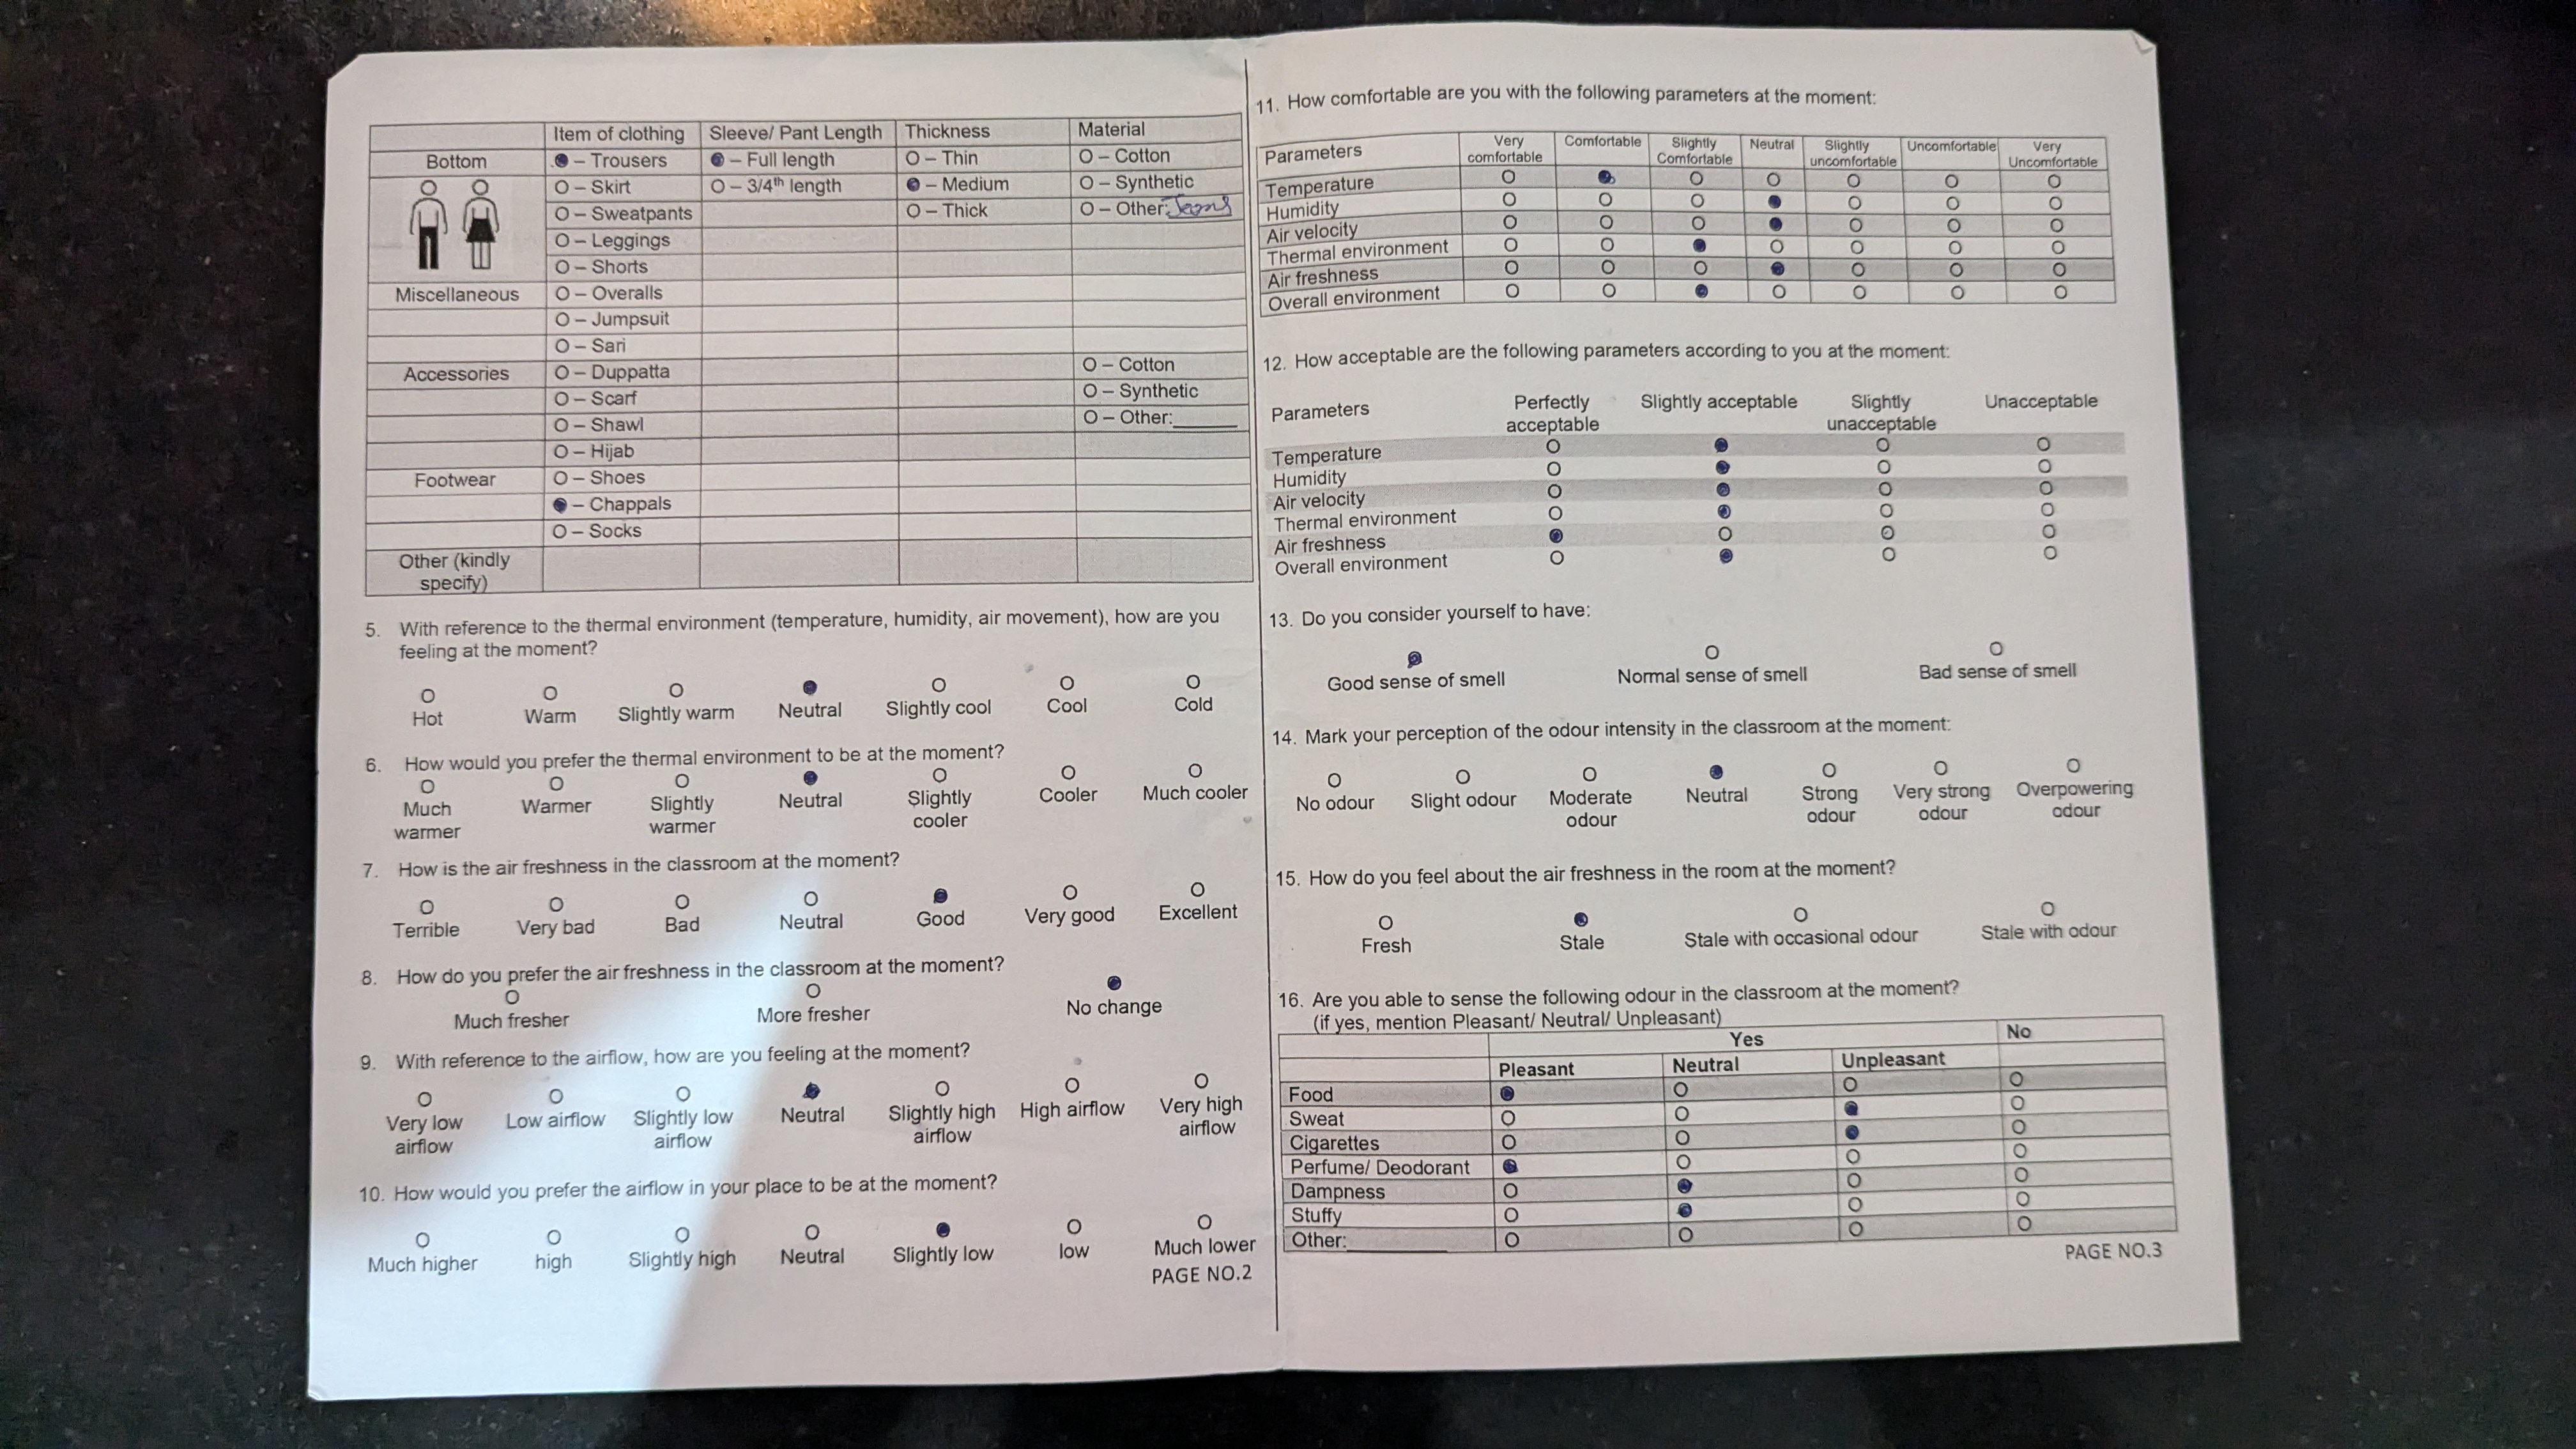 Item of clothing Sleeve/ Pant Length Thickness Material
Bottom ● – Trousers ● – Full length O – Thin O – Cotton
O – Skirt O – 3/4th length ● – Medium O – Synthetic
O – Sweatpants O – Thick O – Other: Jeans
O – Leggings
O – Shorts
Miscellaneous O – Overalls
O – Jumpsuit
O – Sari
Accessories O – Duppatta O – Cotton
O – Scarf O – Synthetic
O – Shawl O – Other:______
O – Hijab
Footwear O – Shoes
● – Chappals
O – Socks
Other (kindly
specify)
5. With reference to the thermal environment (temperature, humidity, air movement), how are you
feeling at the moment?
O O O ● O O O
Hot Warm Slightly warm Neutral Slightly cool Cool Cold
6. How would you prefer the thermal environment to be at the moment?
O O O ● O O O
Much Warmer Slightly Neutral Slightly Cooler Much cooler
warmer warmer cooler
7. How is the air freshness in the classroom at the moment?
O O O O ● O O
Terrible Very bad Bad Neutral Good Very good Excellent
8. How do you prefer the air freshness in the classroom at the moment?
O O ●
Much fresher More fresher No change
9. With reference to the airflow, how are you feeling at the moment?
O O O ● O O O
Very low Low airflow Slightly low Neutral Slightly high High airflow Very high
airflow airflow airflow airflow
10. How would you prefer the airflow in your place to be at the moment?
O O O O ● O O
Much higher high Slightly high Neutral Slightly low low Much lower
PAGE NO.2
11. How comfortable are you with the following parameters at the moment:
Parameters Very Comfortable Slightly Neutral Slightly Uncomfortable Very
comfortable Comfortable uncomfortable Uncomfortable
Temperature O ● O O O O O
Humidity O O O ● O O O
Air velocity O O O ● O O O
Thermal environment O O ● O O O O
Air freshness O O O ● O O O
Overall environment O O ● O O O O
12. How acceptable are the following parameters according to you at the moment:
Parameters Perfectly Slightly acceptable Slightly Unacceptable
acceptable unacceptable
Temperature O ● O O
Humidity O ● O O
Air velocity O ● O O
Thermal environment O ● O O
Air freshness ● O O O
Overall environment O ● O O
13. Do you consider yourself to have:
● O O
Good sense of smell Normal sense of smell Bad sense of smell
14. Mark your perception of the odour intensity in the classroom at the moment:
O O O ● O O O
No odour Slight odour Moderate Neutral Strong Very strong Overpowering
odour odour odour odour
15. How do you feel about the air freshness in the room at the moment?
O ● O O
Fresh Stale Stale with occasional odour Stale with odour
16. Are you able to sense the following odour in the classroom at the moment?
(if yes, mention Pleasant/ Neutral/ Unpleasant)
Yes No
Pleasant Neutral Unpleasant
Food ● O O O
Sweat O O ● O
Cigarettes O O ● O
Perfume/ Deodorant ● O O O
Dampness O ● O O
Stuffy O ● O O
Other:________ O O O O
PAGE NO.3